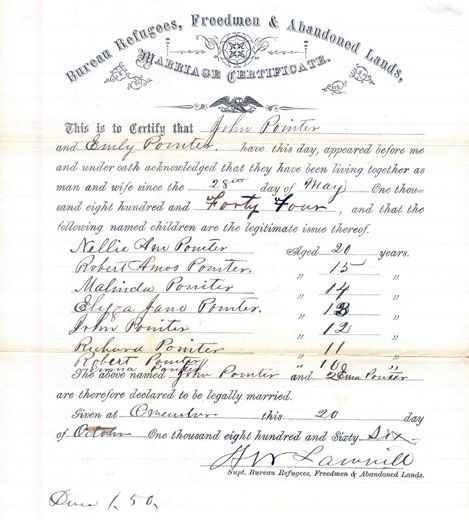 Bureau Refugees, Freedmen & Abandoned Lands,
Marriage Certificate.
This is to Certify that John Pointer
and Emily Pointer. have this day, appeared before me
and under oath acknowledged that they have been living together as
man and wife since the 28th day of May One thou-
sand eight hundred and Forty Four, and that the
following named children are the legitimate issue thereof.
Nellie Ann Pointer Aged 20 years.
Robert Amos Pointer " 15 "
Malinda Pointer " 14 "
Eliza Jane Pointer. " 13 "
John Pointer " 12 "
Richard Pointer " 11 "
Robert Pointer " 10 "
Emma Pointer 2
The above named John Pointer and Pointer
are therefore declared to be legally married.
Given at this 20 day
of October One thousand eight hundred and Sixty Six.
Supt. Bureau Refugees, Freedmen & Abandoned Lands.
1.50.